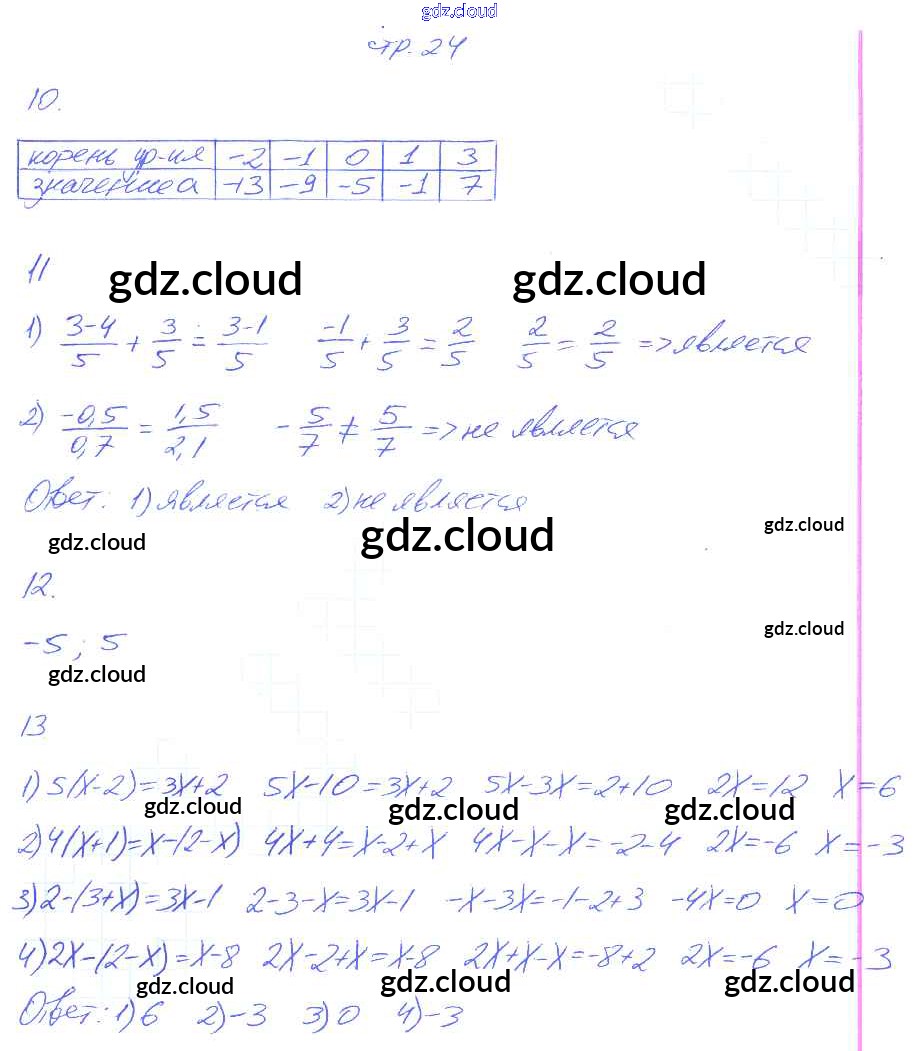 gdz.cloud
стр. 24
10.
корень ур-ия -2 -1 0 1 3
значение a -13 -9 -5 -1 7
11
gdz.cloud gdz.cloud
1) (3-4)/5 + 3/5 = (3-1)/5 -1/5 + 3/5 = 2/5 2/5 = 2/5 => является
2) -0,5/0,7 = 1,5/2,1 - 5/7 ≠ 5/7 => не является
Ответ: 1) является 2) не является
gdz.cloud gdz.cloud gdz.cloud
12.
gdz.cloud
-5 ; 5
gdz.cloud
13
1) 5(x-2)=3x+2 5x-10=3x+2 5x-3x=2+10 2x=12 x=6
gdz.cloud gdz.cloud gdz.cloud
2) 4(x+1)=x-(2-x) 4x+4=x-2+x 4x-x-x=-2-4 2x=-6 x=-3
3) 2-(3+x)=3x-1 2-3-x=3x-1 -x-3x=-1-2+3 -4x=0 x=0
4) 2x-(2-x)=x-8 2x-2+x=x-8 2x+x-x=-8+2 2x=-6 x=-3
gdz.cloud gdz.cloud gdz.cloud
Ответ: 1) 6 2) -3 3) 0 4) -3